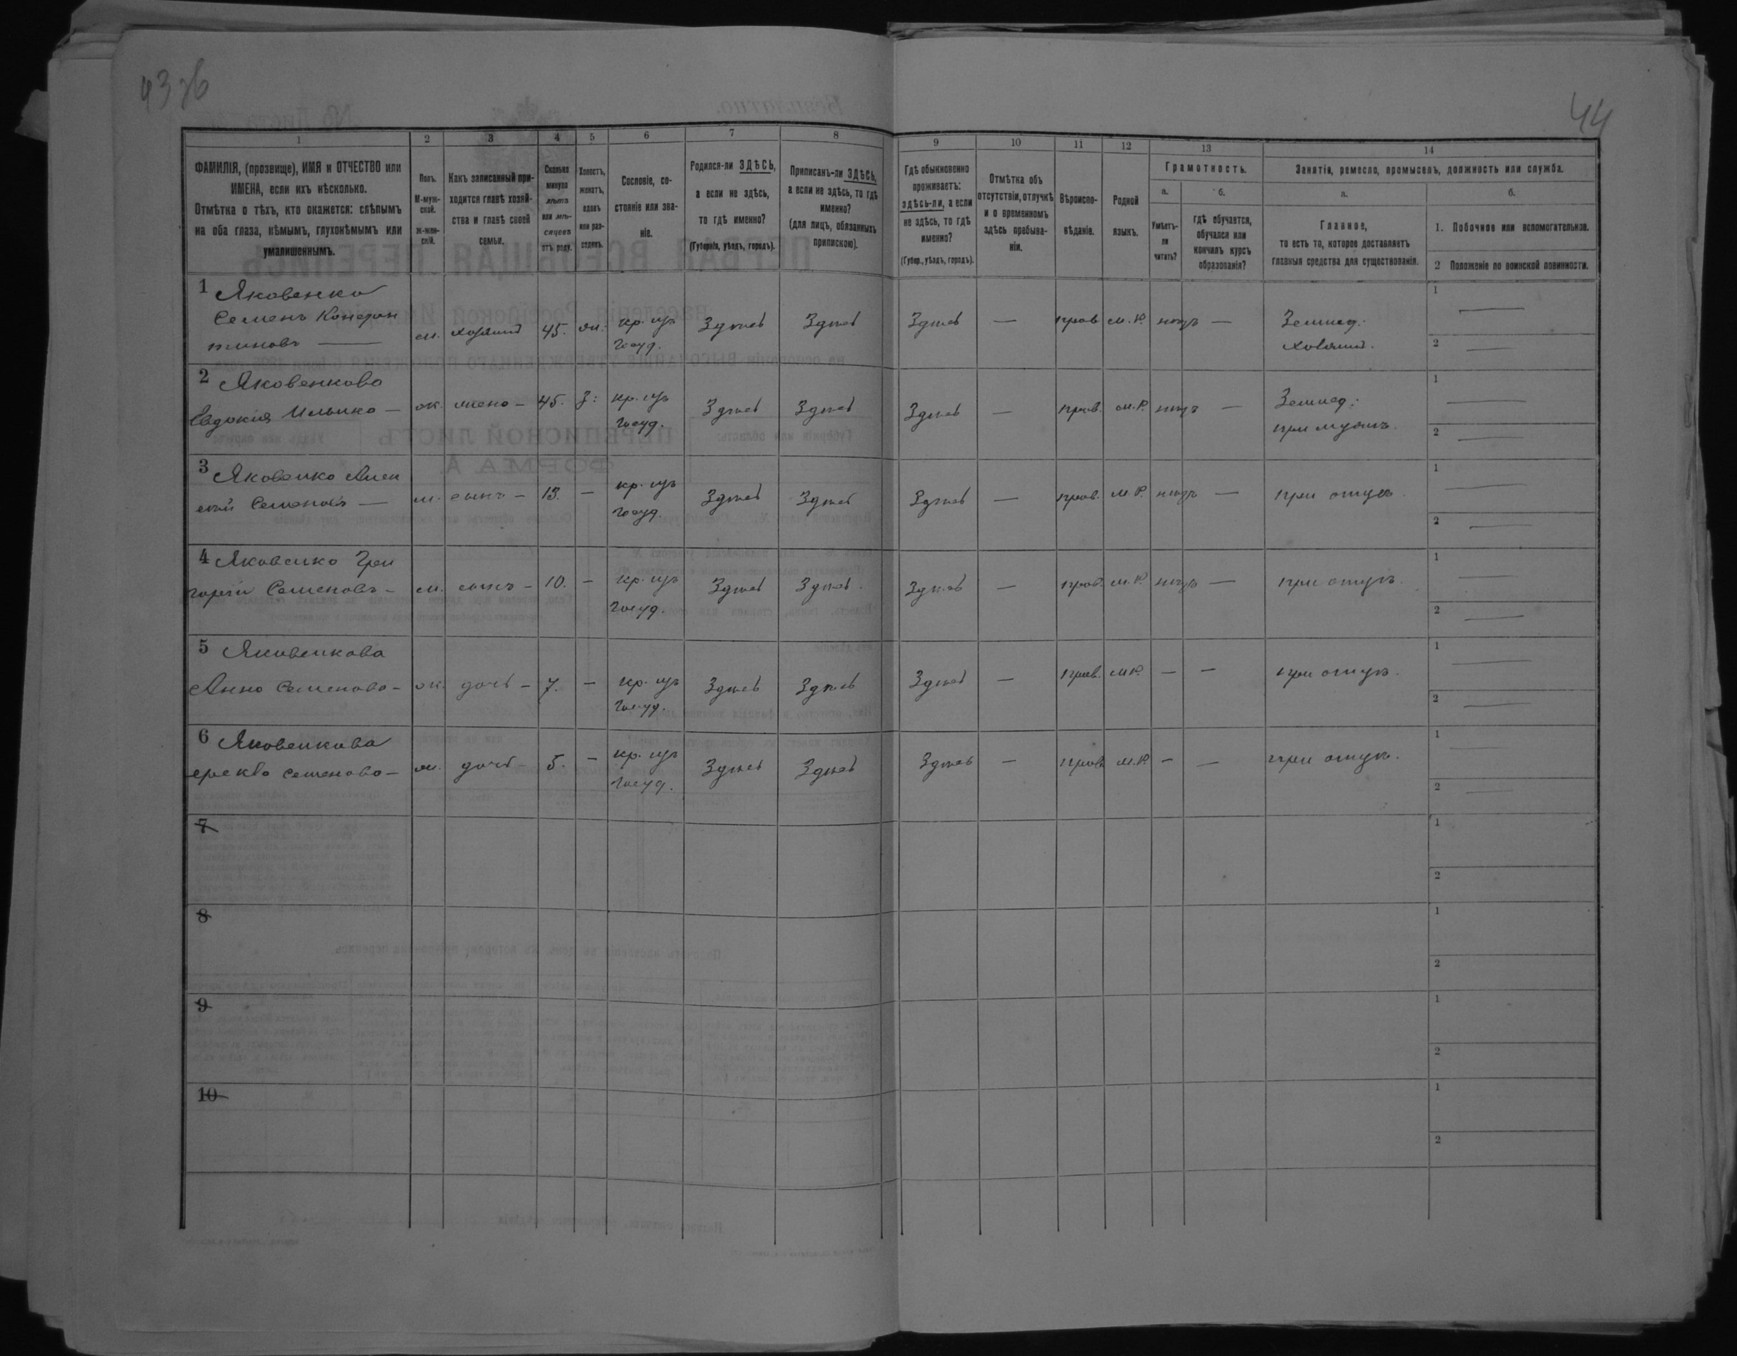 43 об
44
1
2
3
4
5
6
7
8
9
10
11
12
13
14
ФАМИЛІЯ, (прозвище), ИМЯ и ОТЧЕСТВО или
ИМЕНА, если ихъ нѣсколько.
Отмѣтка о тѣхъ, кто окажется: слѣпымъ
на оба глаза, нѣмымъ, глухонѣмымъ или
умалишеннымъ.
Полъ.
М-муж-
ской.
Ж-жен-
скій.
Какъ записанный при-
ходится главѣ хозяй-
ства и главѣ своей
семьи.
Сколько
минуло
лѣтъ
или мѣ-
сяцевъ
отъ роду.
Холостъ,
женатъ,
вдовъ
или раз-
веденъ.
Сословіе, со-
стояніе или зва-
ніе.
Родился-ли ЗДѢСЬ,
а если не здѣсь,
то гдѣ именно?
(Губернія, уѣздъ, городъ).
Приписанъ-ли ЗДѢСЬ,
а если не здѣсь, то гдѣ
именно?
(для лицъ, обязанныхъ
припискою).
Гдѣ обыкновенно
проживаетъ:
здѣсь-ли, а если
не здѣсь, то гдѣ
именно?
(Губер., уѣздъ, городъ).
Отмѣтка объ
отсутствіи, отлучкѣ
и о временномъ
здѣсь пребыва-
ніи.
Вѣроиспо-
вѣданіе.
Родной
языкъ.
Грамотность.
а.
б.
Умѣетъ-
ли
читать?
гдѣ обучается,
обучался или
кончилъ курсъ
образованія?
Занятіе, ремесло, промыселъ, должность или служба.
а.
б.
Главное,
то есть то, которое доставляетъ
главныя средства для существованія.
1. Побочное или вспомогательное.
2 Положеніе по воинской повинности.
1 Яковенко
Семенъ Констан
тиновъ — м. хозяинъ 45. ж. кр. изъ госуд. Здѣсь Здѣсь Здѣсь — прав. м.Р. нѣтъ — Землед. хозяинъ. 1 — 2 —
2 Яковенкова
Евдокія — ж. жена — 45. з: кр. изъ госуд. Здѣсь Здѣсь Здѣсь — прав. м.Р. нѣтъ — Землед: при мужѣ. 1 — 2 —
3 Яковенко Алек
сѣй Семеновъ — м. сынъ — 13. — кр. изъ госуд. Здѣсь Здѣсь Здѣсь — прав. м.Р. нѣтъ — при отцѣ. 1 — 2 —
4 Яковенко Гри
горій Семеновъ — м. сынъ — 10. — кр. изъ госуд. Здѣсь Здѣсь. Здѣсь — прав. м.Р. нѣтъ — при отцѣ. 1 — 2 —
5 Яковенкова
Анна Семенова — ж. дочь — 7. — кр. изъ госуд. Здѣсь Здѣсь Здѣсь — прав. м.Р. — — при отцѣ. 1 — 2 —
6 Яковенкова
Семенова — ж. дочь — 5. — кр. изъ госуд. Здѣсь Здѣсь Здѣсь — прав. м.Р. — — при отцѣ. 1 — 2 —
7
1
2
8
1
2
9
1
2
10
1
2